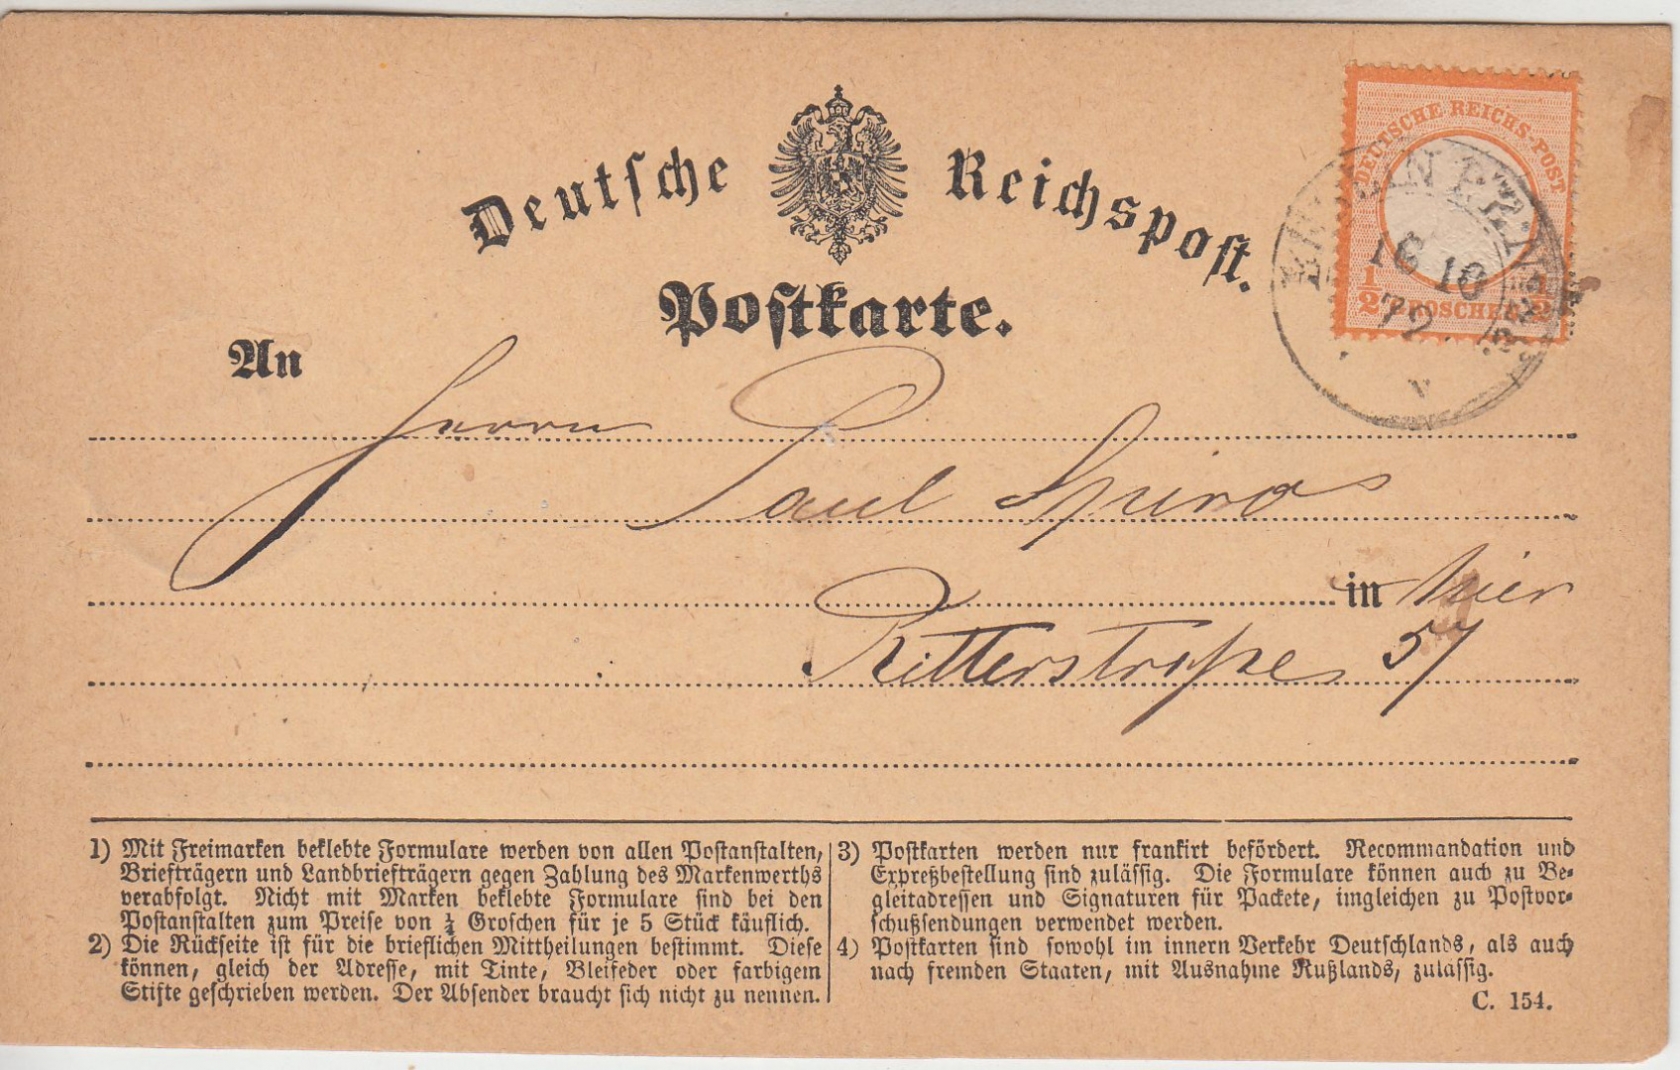 Deutsche Reichspost.
Postkarte.
DEUTSCHE REICHS-POST
1/2 GROSCHEN 1/2
BERLIN
16 10
72
An
Herrn
Paul
in hier
Ritterstraße 57
1) Mit Freimarken beklebte Formulare werden von allen Postanstalten,
Briefträgern und Landbriefträgern gegen Zahlung des Markenwerths
verabfolgt. Nicht mit Marken beklebte Formulare sind bei den
Postanstalten zum Preise von ¼ Groschen für je 5 Stück käuflich.
2) Die Rückseite ist für die brieflichen Mittheilungen bestimmt. Diese
können, gleich der Adresse, mit Tinte, Bleifeder oder farbigem
Stifte geschrieben werden. Der Absender braucht sich nicht zu nennen.
3) Postkarten werden nur frankirt befördert. Recommandation und
Expreßbestellung sind zulässig. Die Formulare können auch zu Be-
gleitadressen und Signaturen für Packete, imgleichen zu Postvor-
schußsendungen verwendet werden.
4) Postkarten sind sowohl im innern Verkehr Deutschlands, als auch
nach fremden Staaten, mit Ausnahme Rußlands, zulässig.
C. 154.